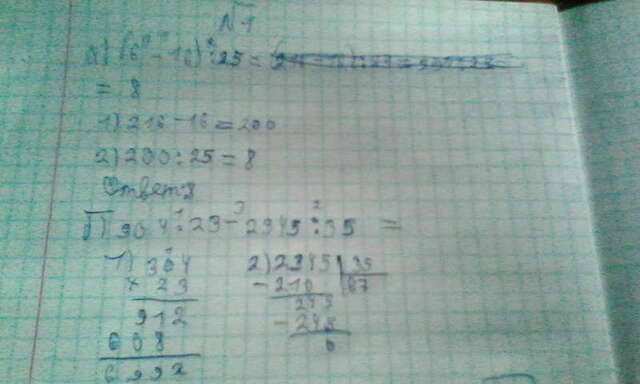 №1
а) (6³ - 16) : 25 =
= 8
1) 216 - 16 = 200
2) 200 : 25 = 8
Ответ: 8
б) 304 · 23 - 2345 : 35 =
1) 304
× 23
912
608
6992
2) 2345 | 35
- 210 | 67
245
- 245
0